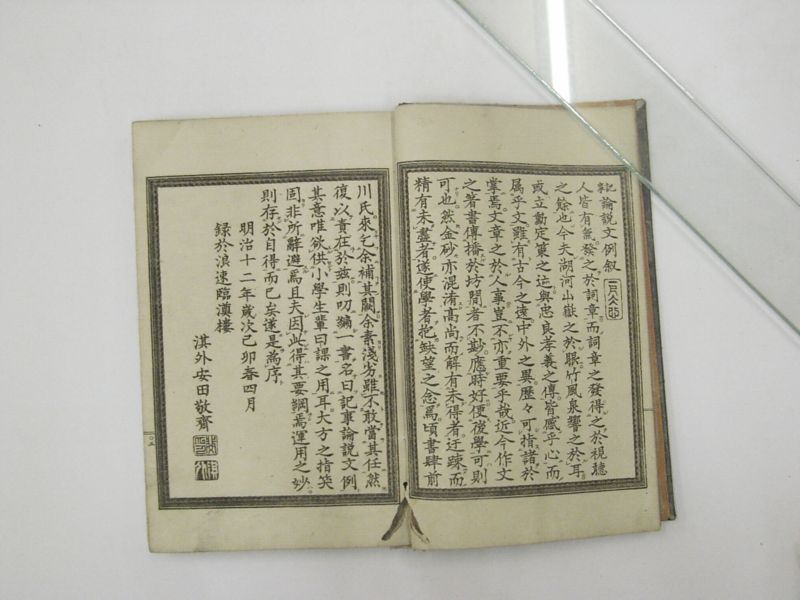 記事論說文例叙
人皆有氣發之於詞章而詞章之發得之於視聽
之餘也今夫湖河山嶽之於眼竹風泉響之於耳
或立動定策之迹與忠良孝義之傳皆感乎心而
属乎文雖有古今之遠中外之異歷々可指諸於
掌焉文章之於人事豈不亦重要乎哉近今作文
之著書傳播於坊間者不尠應時好便後學可則
可也然金砂亦混淆高尚而解有未得者迂踈而
精有未盡者遂使學者抱缺望之念爲頃書肆前
川氏來乞余補其闕余素淺劣雖不敢當其任然
復以責在於玆則叨獮一書名曰記事論說文例
其意唯欲供小學生輩日課之用耳大方之指笑
固非所辭避焉且夫因此得其要綱焉運用之妙
則存於自得而已矣遂是為序
明治十二年歲次己卯春四月
錄於浪速臨漢樓
淇外安田敬齋